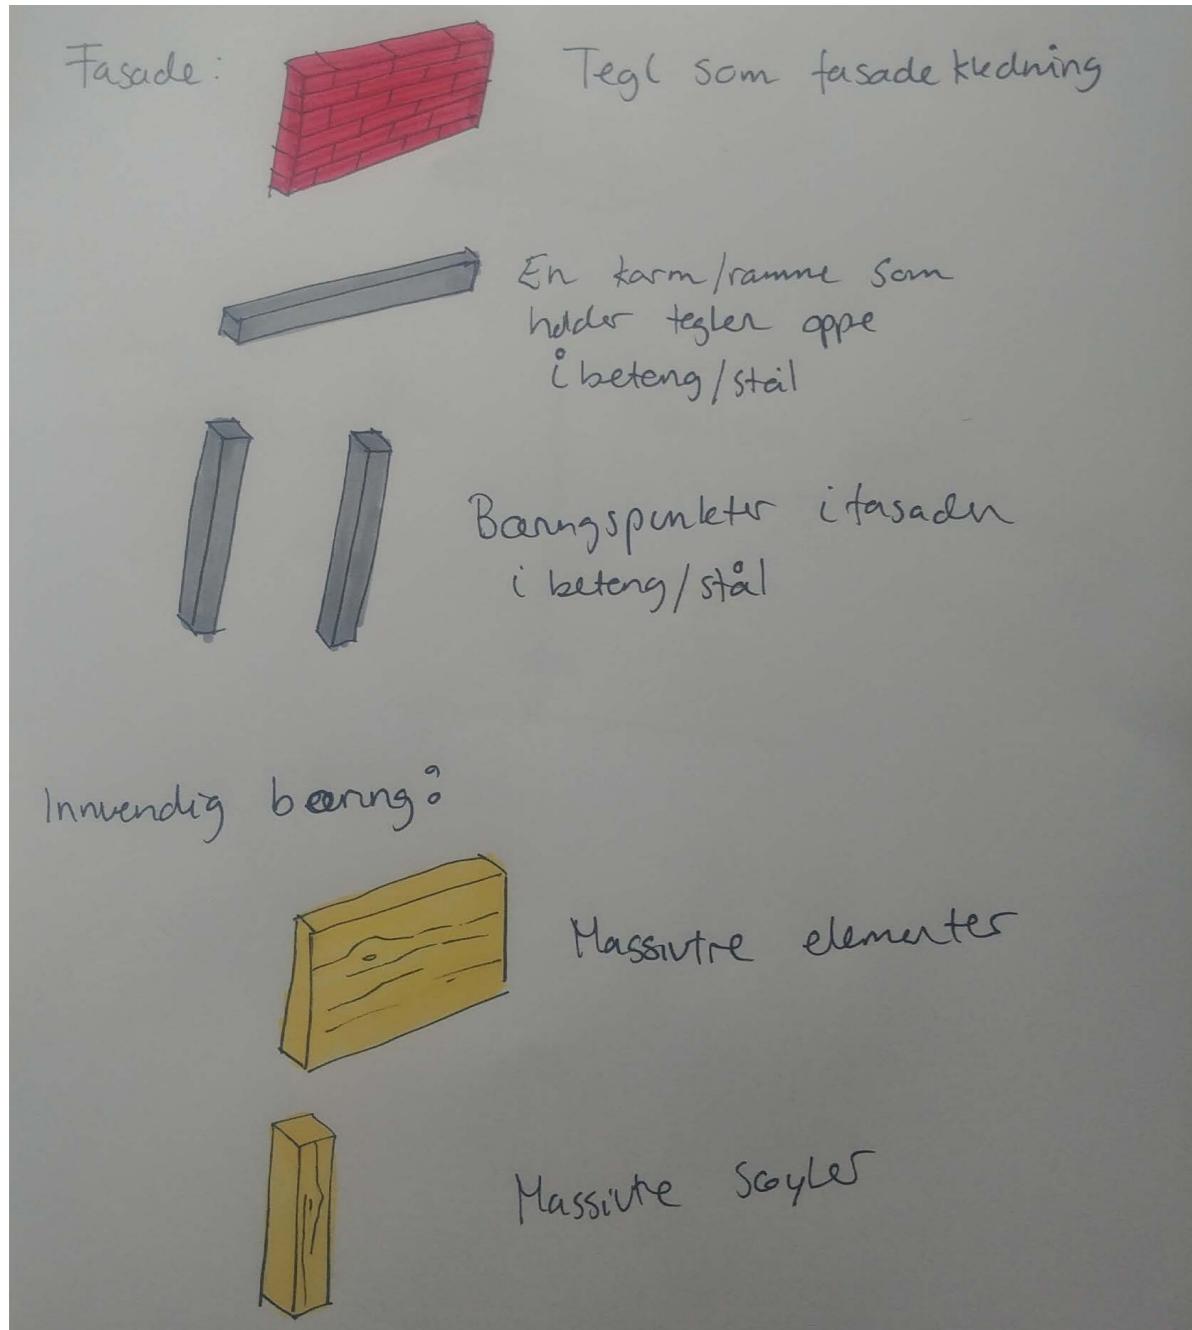 Fasade:
Tegl som fasade kledning
En karm/ramme som
holder teglen oppe
i beteng/stål
Bæringspunkter i fasaden
i beteng/stål
Innvendig bæring:
Massivtre elementer
Massivtre søyler